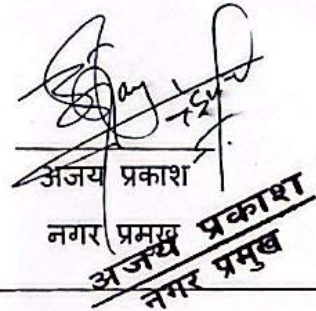 अजय प्रकाश
नगर प्रमुख
अजय प्रकाश
नगर प्रमुख